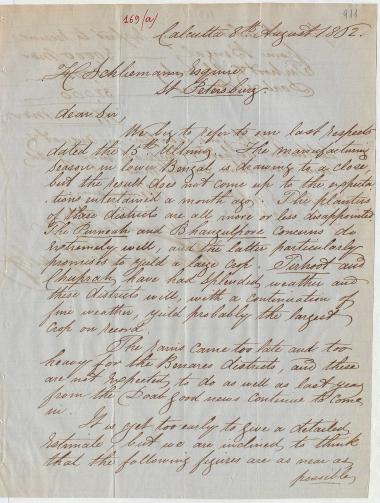 169 (a)
911
Calcutta 8th August 1852.
H. Schliemann Esquire
St. Petersburg
dear Sir,
We beg to refer to our last respects
dated the 15th Ultimo. The manufacturing
season in lower Bengal is drawing to a close,
but the result does not come up to the expecta
tions entertained a month ago. The planters
of these districts are all more or less disappointed.
The Purneah and Bhaugulpore concerns do
extremely well, and the latter particularly
promises to yield a large crop. Tirhoot and
Chuprah have had splendid weather and
these districts will, with a continuation of
fine weather, yield probably the largest
crop on record.
The rains came too late and too
heavy for the Benares districts, and these
are not expected to do as well as last year
from the Doab good news continue to come
in.
It is yet too early to give a detailed
estimate but we are inclined to think
that the following figures are as near as
possible